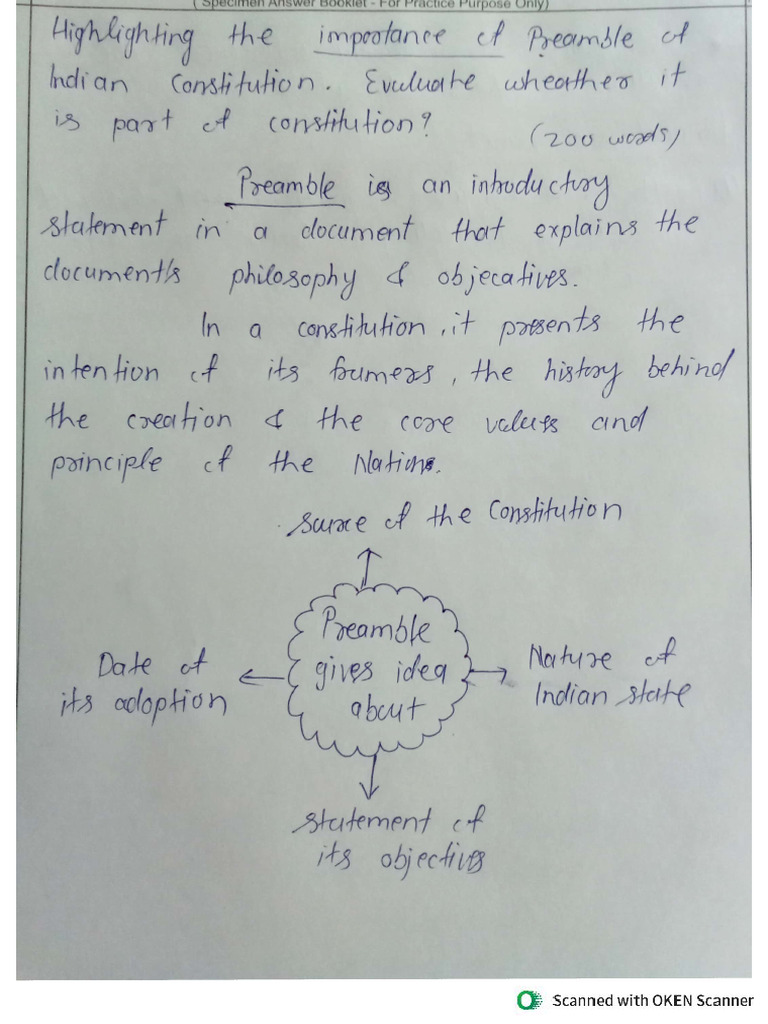 ( Specimen Answer Booklet - For Practice Purpose Only)
Highlighting the importance of Preamble of
Indian Constitution. Evaluate wheather it
is part of constitution?
(200 words)
Preamble is an introductory
statement in a document that explains the
document's philosophy & objecatives.
In a constitution, it presents the
intention of its framers, the history behind
the creation & the core values and
principle of the Nation.
Surce of the Constitution
Preamble
gives idea
about
Date of
its adoption
Nature of
Indian state
Statement of
its objectives
Scanned with OKEN Scanner